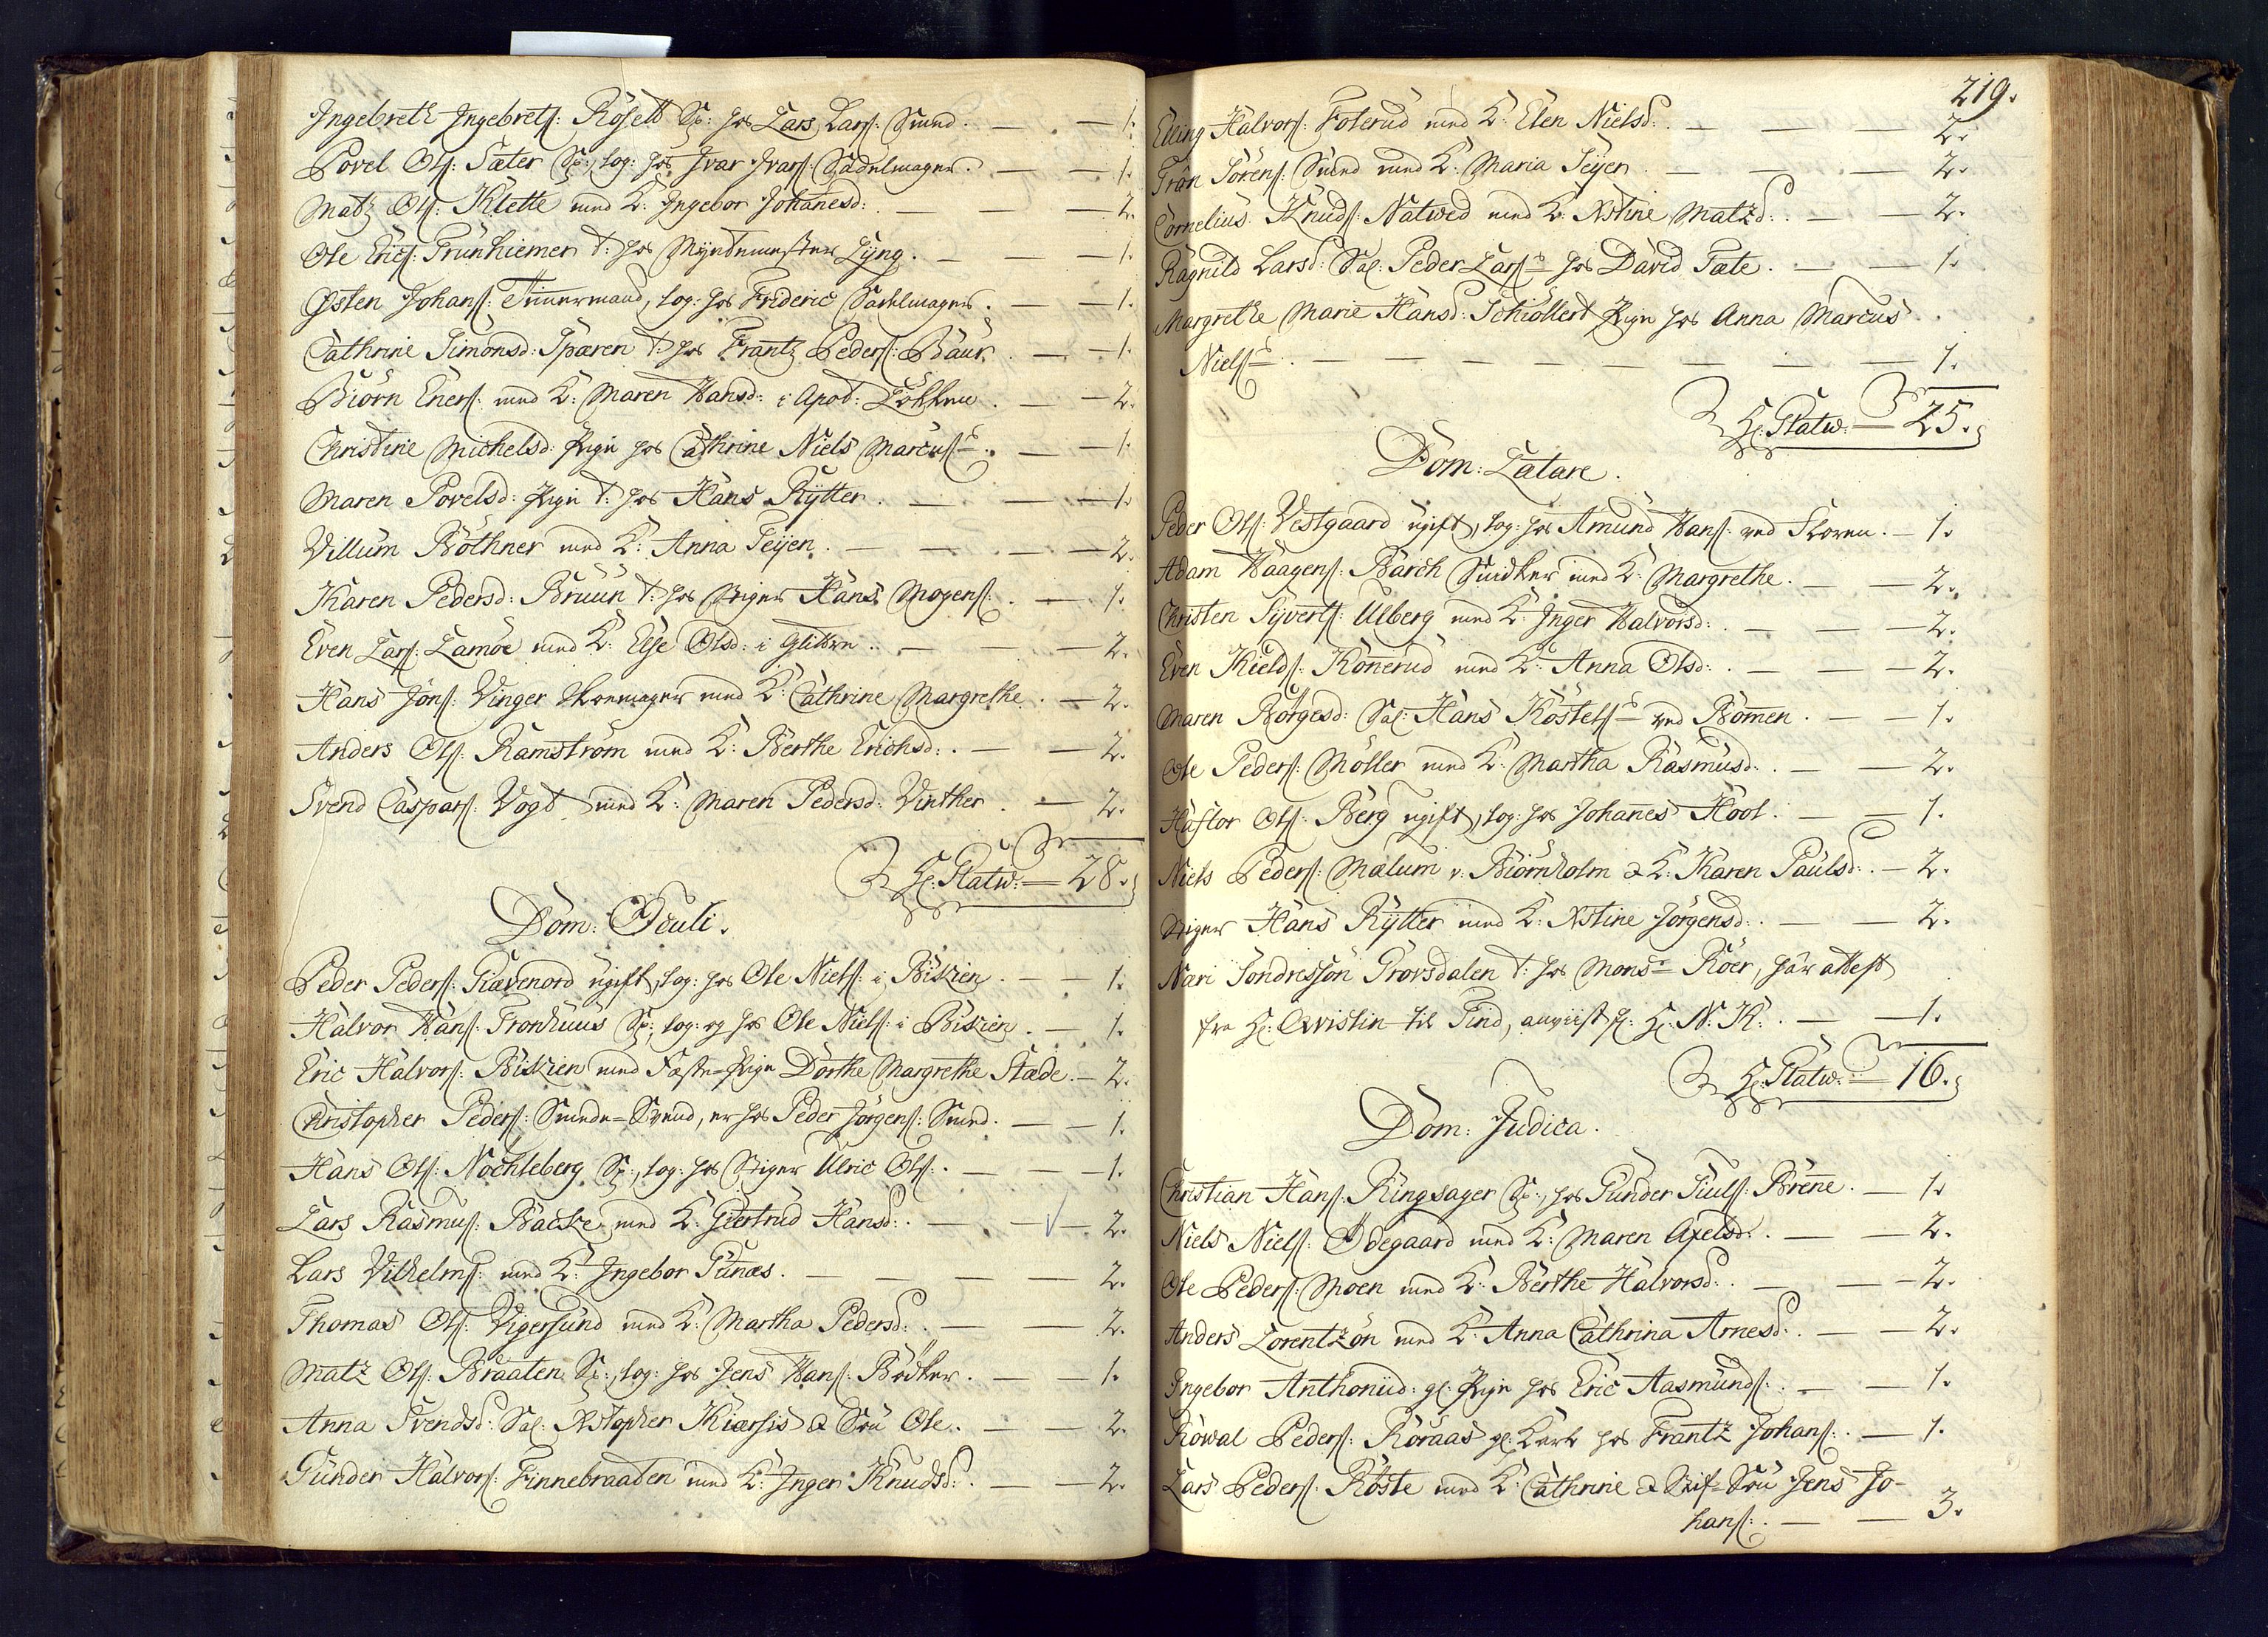 Ingebreth Ingebretſ: Röſett Sp: hos Lars Larſ: Smed. — 1.
Povel Olſ: Sæter Sp:, log: hos Ivar Ivarſ: Sadelmager. — 1.
Matz Olſ: Klette med K: Ingebor Johanesd: — 2.
Ole Ericſ: Trünhiemer t: hos Myntmester Lÿng. — 1.
Østen Johanſ: Timmermand, log: hos Frideric Sadelmager. — 1.
Cathrine Simonsd: Sparen t: hos Frantz Pederſ: Baur. — 1.
Biörn Enerſ: med K: Maren Hansd: i Apod: Lökken. — 2.
Christine Michelsd: Pige hos Cathrine Niels Marcuſes. — 1.
Maren Povelsd: Pige t: hos Hans Rÿtter. — 1.
Villum Böthner med K: Anna Seÿer. — 2.
Karen Pedersd: Bruün t: hos Stiger Hans Mogenſ: — 1.
Even Larſ: Lamöe med K: Else Olsd: i Glitre. — 2.
Hans Jonſ: Vinger Skoemager med K: Cathrine Margrethe. — 2.
Anders Olſ: Ramström med K: Berthe Erichsd: — 2.
Svend Casparſ: Vogt med K: Maren Pedersd: Vinther. — 2.
H: Platw. — 28.
Dom: Oculi.
Peder Pederſ: Giævenord ugift, log: hos Ole Nielſ: i Bikien. — 1.
Halvor Hanſ: Fronhuus Sp:, log: og hos Ole Nielſ: i Bikien. — 1.
Eric Halvorſ: Bikien med Fæste-Pige Dorthe Margrethe Stæde. — 2.
Christopher Pederſ: Smede-Svend, er hos Peder Jörgenſ: Smed. — 1.
Hans Olſ: Nochleberg Sp:, log: hos Stiger Ulric Olſ: — 1.
Lars Rasmuſ: Backe med K: Giertrud Hansd: — 2.
Lars Vilhelmſ: med K: Ingebor Punæs. — 2.
Thomas Olſ: Vigersund med K: Martha Pedersd: — 2.
Matz Olſ: Braaten Sp:, log: hos Jens Hanſ: Bödker. — 1.
Anna Svendsd: Sal: Xstopher Kiærsis & Sön Ole. — 2.
Gunder Halvorſ: Finnebraaten med K: Inger Knudsd: — 2.
219.
Elling Halvorſ: Foterud med K: Elen Nielsd: — 2.
Tron Sörenſ: Smed med K: Maria Seÿer. — 2.
Cornelius Knudſ: Natwed med K: Xstine Matzd: — 2.
Ragnild Larsd: Sal: Peder Larſes hos David Tate. — 1.
Margrethe Marie Hansd: Schiöllert Pige hos Anna Marcus
Nielſes — 1.
H: Platw. — 25.
Dom: Lætare.
Peder Olſ: Vestgaard ugift, log: hos Amund Hanſ: ved Skoven. — 1.
Adam Haagenſ: Barch Snidker med K: Margrethe. — 2.
Christen Sÿvertſ: Ulberg med K: Inger Halvorsd: — 2.
Even Kieldſ: Konerud med K: Anna Olsd: — 2.
Maren Börgesd: Sal: Hans Kösteles ved Bommen. — 1.
Ole Pederſ: Möller med K: Martha Rasmusd: — 2.
Haftor Olſ: Berg ugift, log: hos Johanes Hool. — 1.
Niels Pederſ: Mælum v: Biörnholm & K: Karen Paulsd: — 2.
Stiger Hans Rÿtter med K: Xstine Jörgensd: — 2.
Næri Sondressön Grovsdalen t: hos Mons:r Röer, har attest
fra H: Qvislin til Tind, anviist H: N: K: — 1.
H: Platw. — 16.
Dom: Judica.
Christian Hanſ: Ringsager Sp:, hos Gunder Giulſ: Brene. — 1.
Niels Nielſ: Ödegaard med K: Maren Axelsd: — 2.
Ole Pederſ: Moen med K: Berthe Halvorsd: — 2.
Anders Lorentzön med K: Anna Cathrina Arnesd: — 2.
Ingebor Anthoniid: gl: Pige hos Eric Aasmundſ: — 1.
Rowal Pederſ: Röraas gl: Karl hos Frantz Johanſ: — 1.
Lars Pederſ: Röste med K: Cathrine & Stif-Sön Jens Jo-
hanſ: — 3.